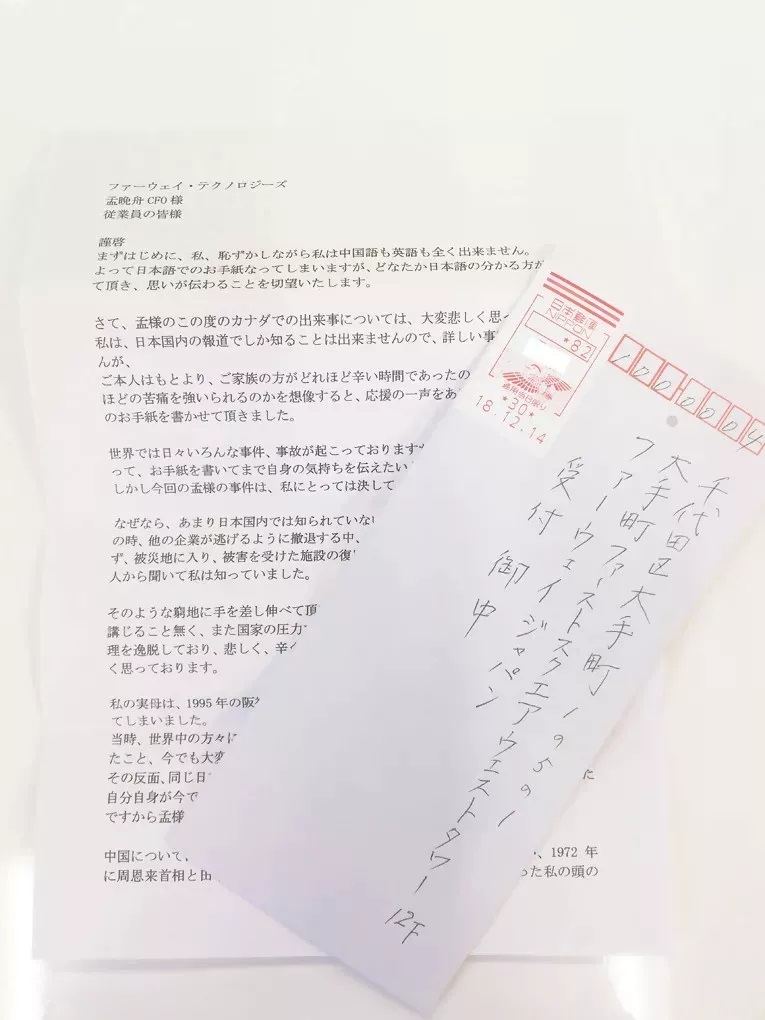 ファーウェイ・テクノロジーズ
孟晩舟 CFO 様
従業員の皆様
謹啓
まずはじめに、私、恥ずかしながら私は中国語も英語も全く出来ません。
よって日本語でのお手紙なってしまいますが、どなたか日本語の分かる方が
て頂き、思いが伝わることを切望いたします。
さて、孟様のこの度のカナダでの出来事については、大変悲しく思っ
私は、日本国内の報道でしか知ることは出来ませんので、詳しい事
んが、
ご本人はもとより、ご家族の方がどれほど辛い時間であったの
ほどの苦痛を強いられるのかを想像すると、応援の一声をあ
のお手紙を書かせて頂きました。
世界では日々いろんな事件、事故が起こっております
って、お手紙を書いてまで自身の気持ちを伝えたい
しかし今回の孟様の事件は、私にとっては決して
なぜなら、あまり日本国内では知られていない
の時、他の企業が逃げるように撤退する中、
ず、被災地に入り、被害を受けた施設の復
人から聞いて私は知っていました。
そのような窮地に手を差し伸べて頂
講じること無く、また国家の圧力
理を逸脱しており、悲しく、辛く
く思っております。
私の実母は、1995 年の阪
てしまいました。
当時、世界中の方々に
たこと、今でも大変
その反面、同じ日 に
自分自身が今で
ですから孟様
中国について、 、1972 年
に周恩来首相と田 った私の頭の
日本郵便
NIPPON
*82
*30*
18.12.14
1000004
千代田区大手町1の5の1
大手町ファーストスクエアウエストタワー 12F
ファーウェイジャパン
受付 御中